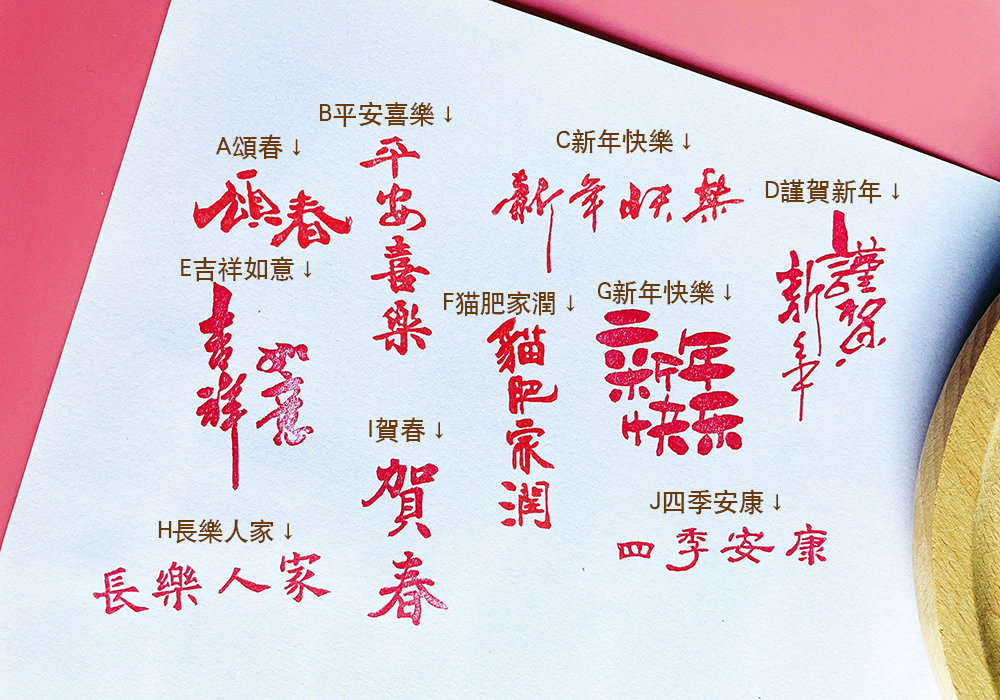 B平安喜樂↓
平
安
喜
樂
A頌春↓
頌春
C新年快樂↓
新年快樂
D謹賀新年↓
謹賀
新年
E吉祥如意↓
吉祥
如意
F猫肥家潤↓
貓
肥
家
潤
G新年快樂↓
新年
快乐
I賀春↓
賀
春
H長樂人家↓
長樂人家
J四季安康↓
四季安康